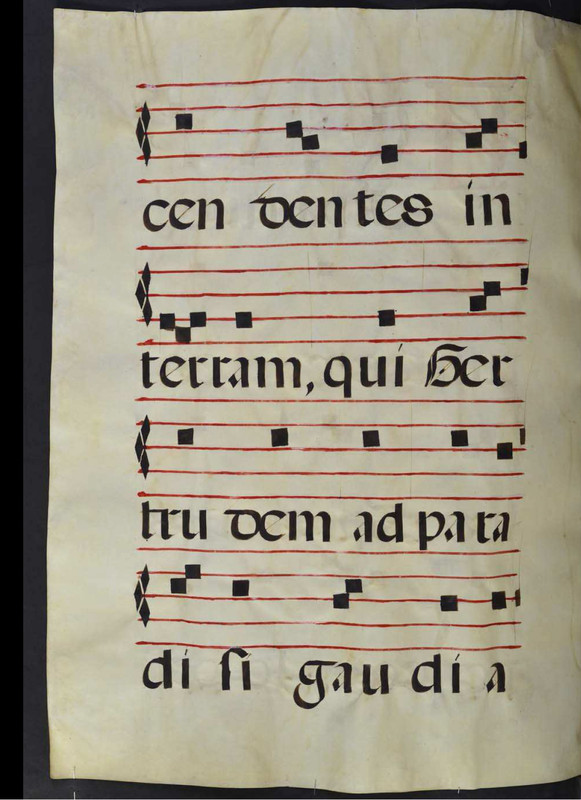 cen den tes in
terram, qui Ger
tru dem ad para
di si gau di a